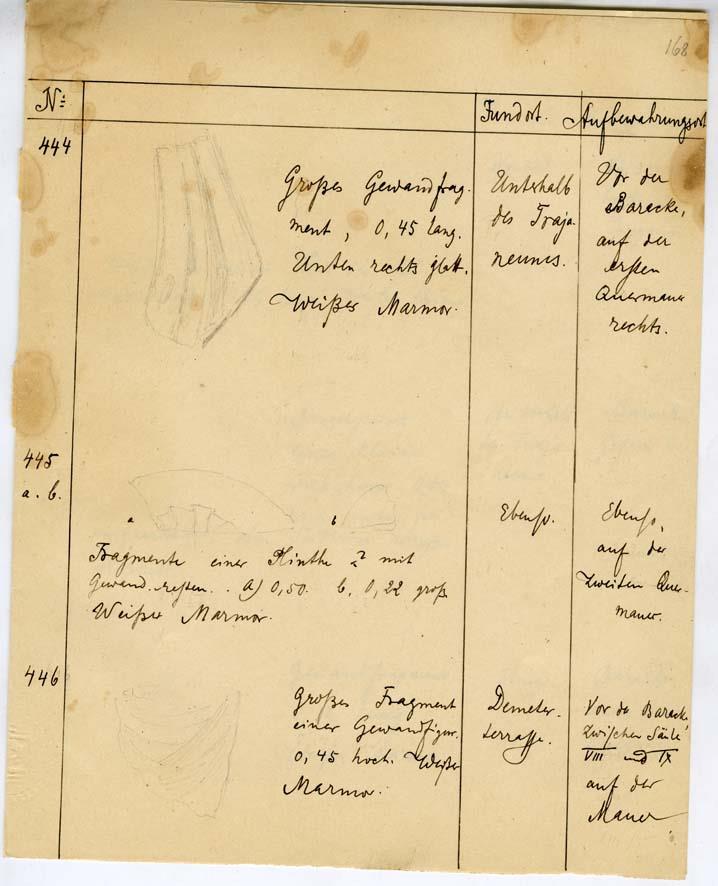 168
No: Fundort. Aufbewahrungsort
444
Großes Gewandfrag-
ment, 0,45 lang.
Unten rechts glatt.
Weißer Marmor.
Unterhalb
des Traja-
neums.
Vor der
Baracke,
auf der
ersten
Quermauer
rechts.
445
a. b.
a b
Fragmente einer Plinthe ? mit
Gewandresten. a) 0,50. b. 0,22 groß
Weißer Marmor.
Ebenso.
Ebenso,
auf der
zweiten Quer-
mauer.
446
Großes Fragment
einer Gewandfigur.
0,45 hoch. Weißer
Marmor.
Demeter-
terrasse.
Vor der Baracke,
zwischen Säule
VIII und IX
auf der
Mauer